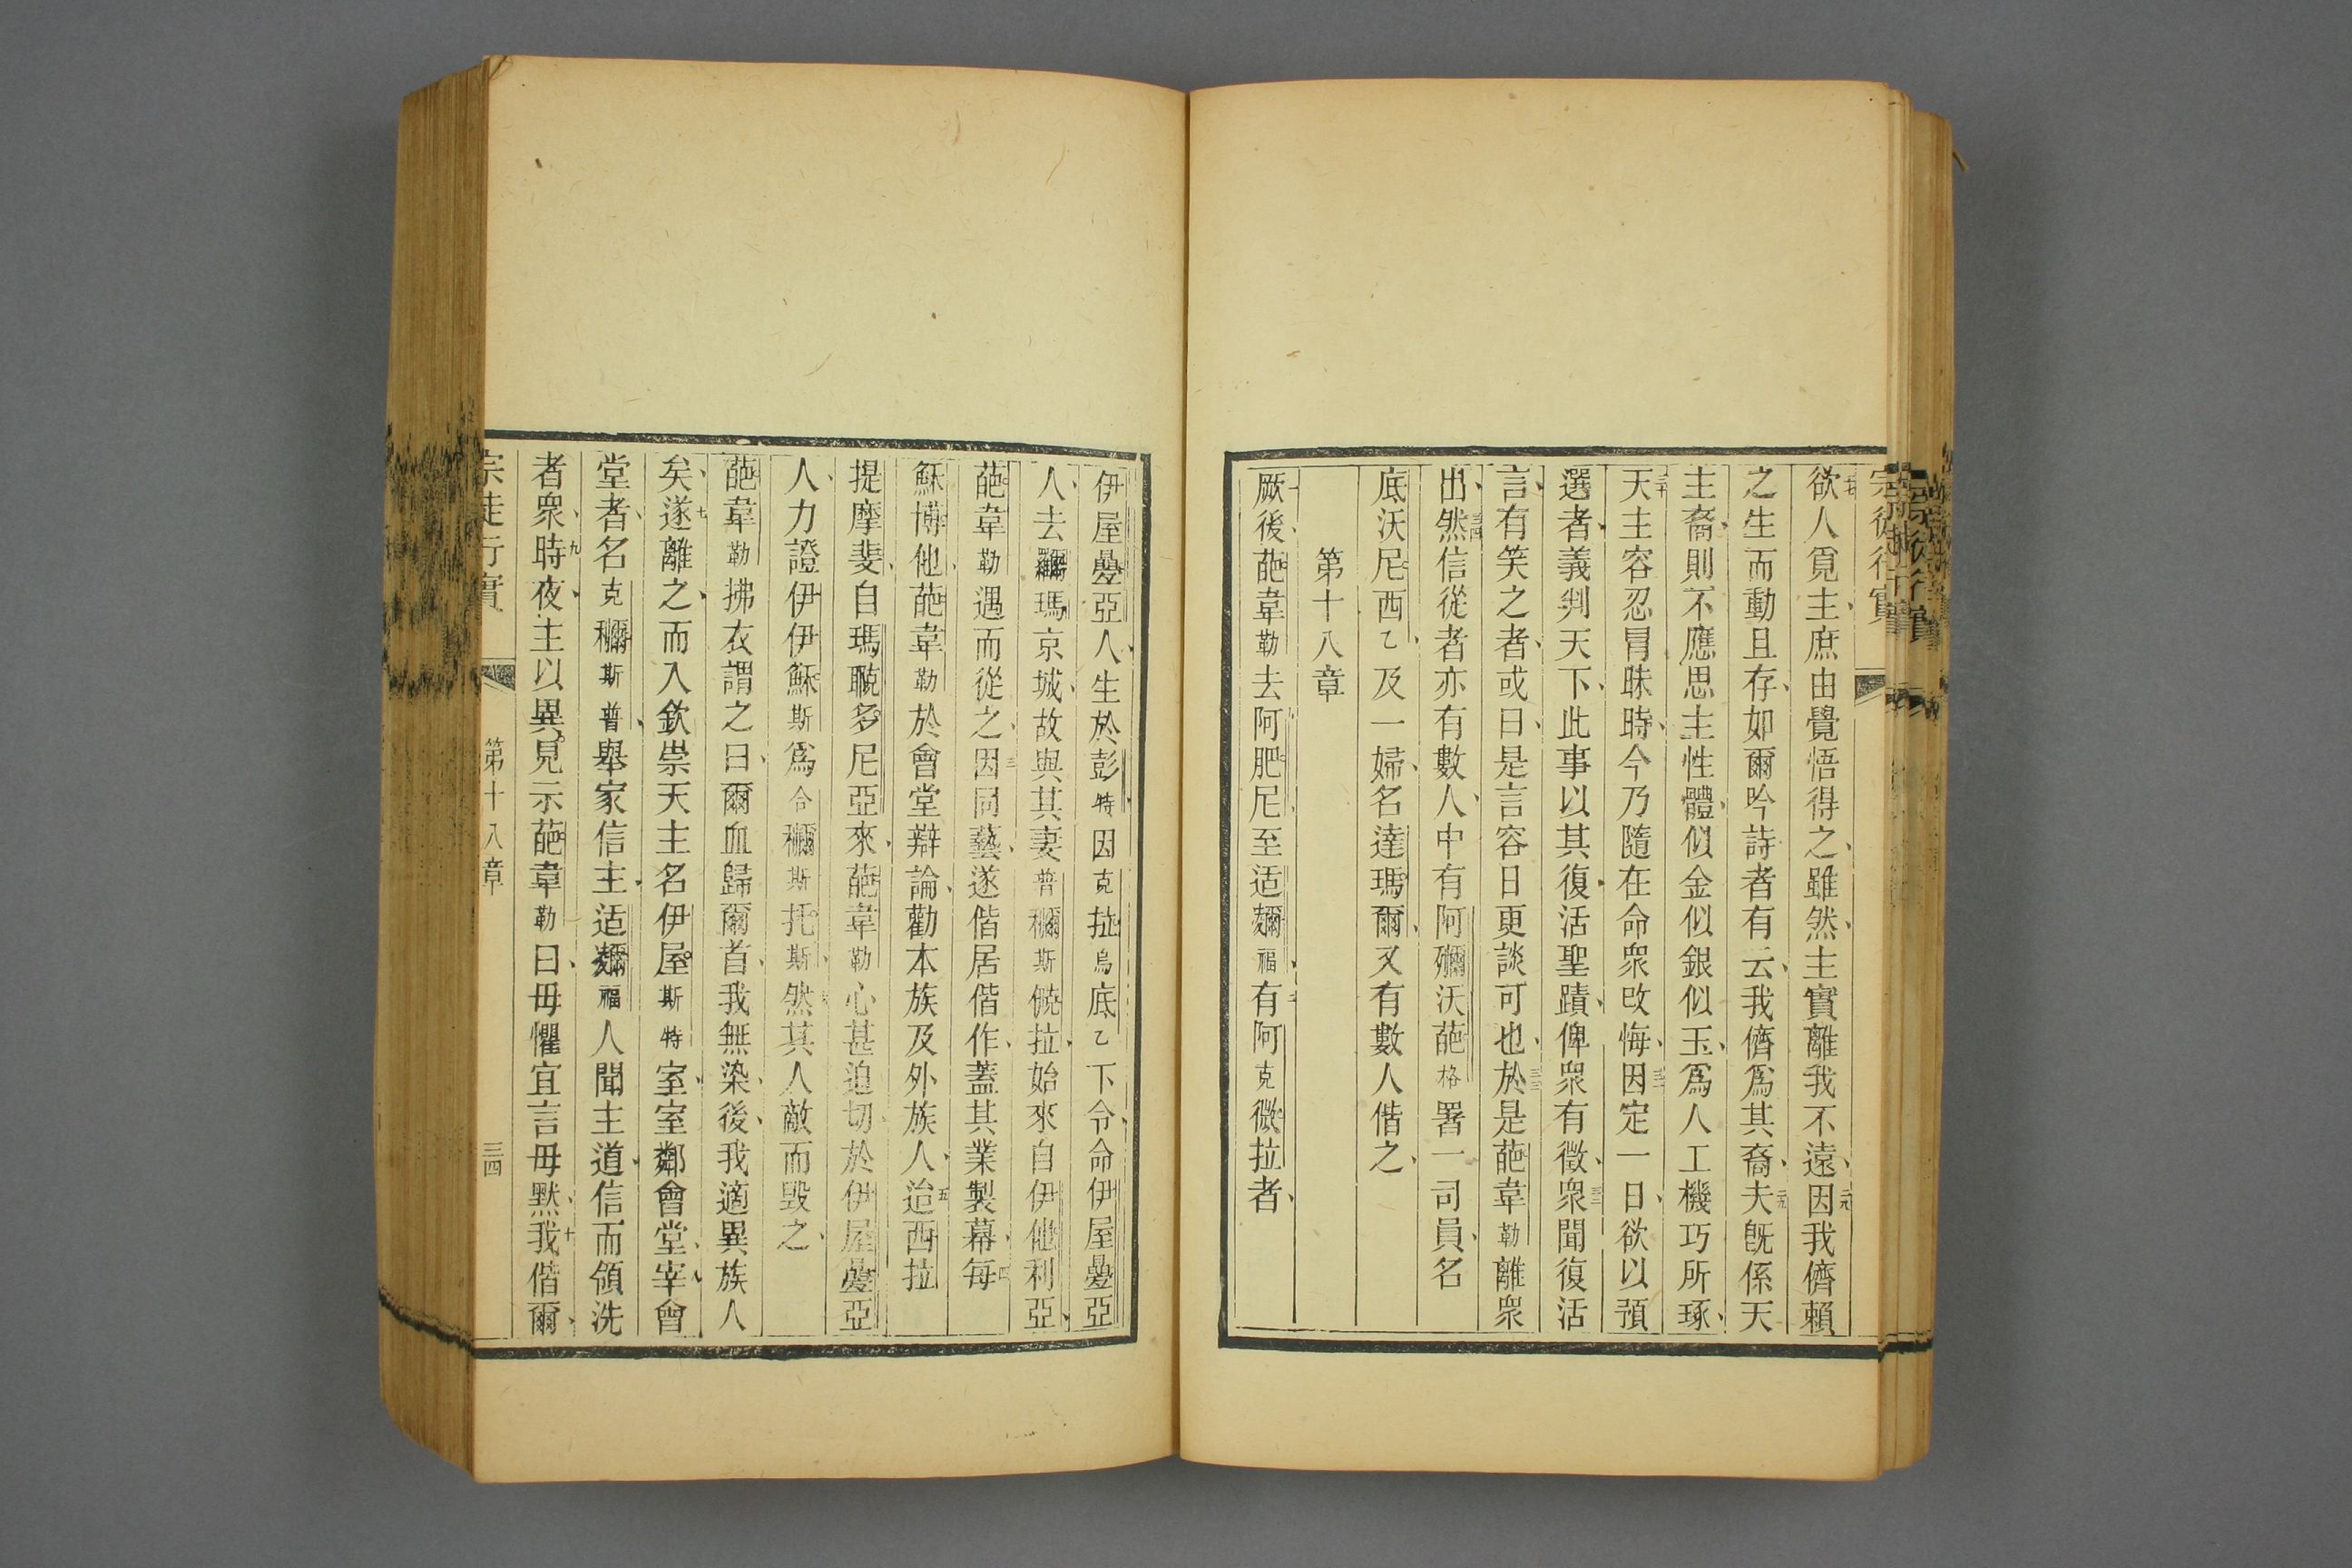 宗徒行實
欲人覓主、庶由覺悟得之、雖然、主實離我不遠、因我儕賴
之生而動且存、如爾吟詩者有云、我儕爲其裔、夫旣係天
主裔、則不應思主性體、似金似銀似玉、爲人工機巧所琢、
天主容忍冒昧時、今乃隨在命眾改悔、因定一日、欲以預
選者、義判天下、此事以其復活聖蹟、俾眾有徵、眾聞復活
言、有笑之者、或曰、是言容日更談可也、於是葩韋勒離眾
出、然信從者亦有數人、中有阿 沃葩格署一司員、名
底沃尼西乙、及一婦、名達瑪爾、又有數人偕之、
第十八章
厥後、葩韋勒去阿肥尼、至适 福、有阿克微拉者、
伊屋 亞人、生於彭特、因克拉烏底乙下令、命伊屋 亞
人、去 瑪京城、故與其妻普 斯 拉、始來自伊他利亞、
葩韋勒遇而從之、因同藝、遂偕居偕作、蓋其業製幕、每
穌博他、葩韋勒於會堂辯論、勸本族及外族人、迨西拉
提摩斐、自瑪 多尼亞來、葩韋勒心甚迫切、於伊屋 亞
人、力證伊伊穌斯爲合 斯托斯、然其人敵而毀之、
葩韋勒拂衣謂之曰、爾血歸爾首、我無染、後、我適異族人
矣、遂離之、而入欽崇天主名伊屋斯特室、室鄰會堂、宰會
堂者、名克 斯普、舉家信主、适 福人聞主道、信而領洗
者眾、時夜、主以異見示葩韋勒曰、毋懼、宜言毋默、我偕爾、
宗徒行實
第十八章
三四